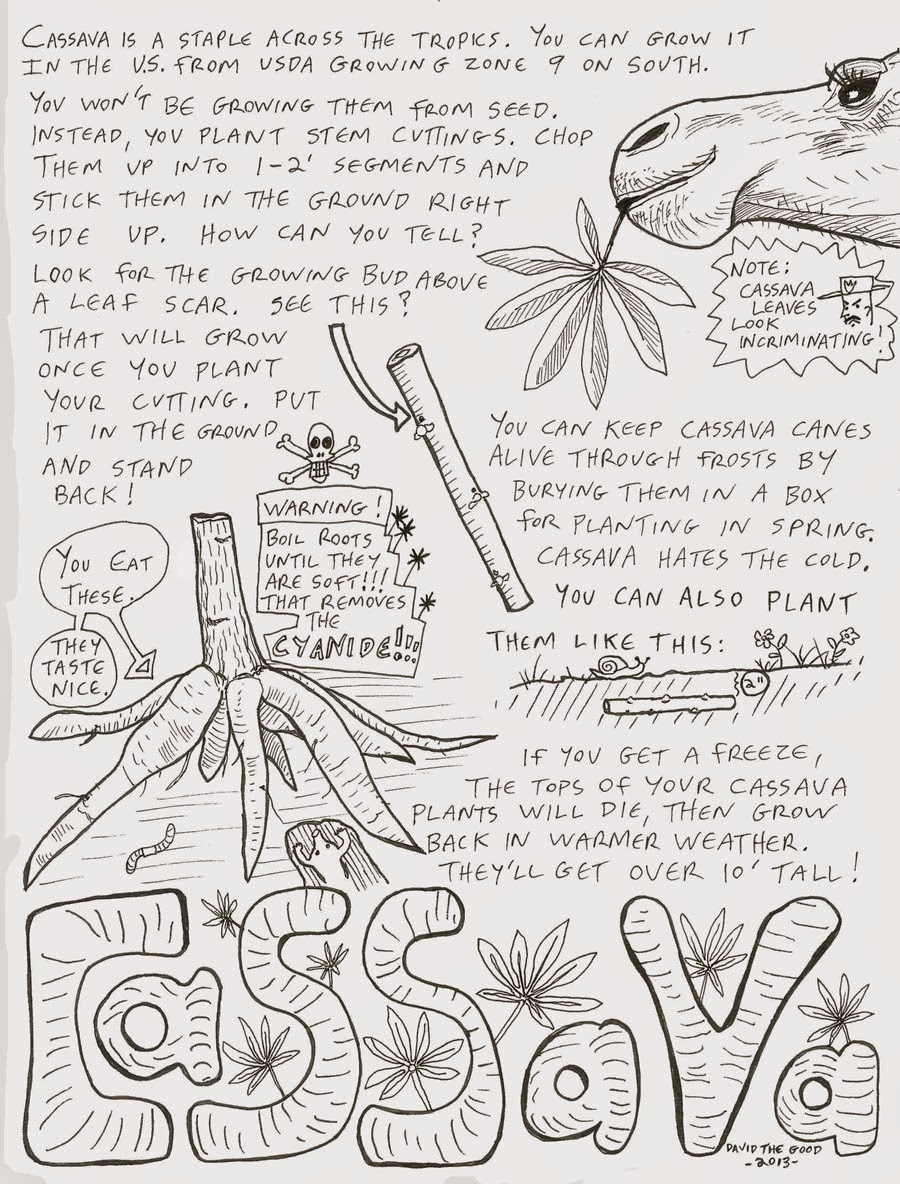 CASSAVA IS A STAPLE ACROSS THE TROPICS. YOU CAN GROW IT
IN THE U.S. FROM USDA GROWING ZONE 9 ON SOUTH.
YOU WON'T BE GROWING THEM FROM SEED.
INSTEAD, YOU PLANT STEM CUTTINGS. CHOP
THEM UP INTO 1-2' SEGMENTS AND
STICK THEM IN THE GROUND RIGHT
SIDE UP. HOW CAN YOU TELL?
LOOK FOR THE GROWING BUD ABOVE
A LEAF SCAR. SEE THIS?
THAT WILL GROW
ONCE YOU PLANT
YOUR CUTTING. PUT
IT IN THE GROUND
AND STAND
BACK!
NOTE:
CASSAVA
LEAVES
LOOK
INCRIMINATING!
YOU CAN KEEP CASSAVA CANES
ALIVE THROUGH FROSTS BY
BURYING THEM IN A BOX
FOR PLANTING IN SPRING.
CASSAVA HATES THE COLD.
WARNING!
BOIL ROOTS
UNTIL THEY
ARE SOFT!!!
THAT REMOVES
THE
CYANIDE!!!
YOU EAT
THESE.
THEY
TASTE
NICE.
YOU CAN ALSO PLANT
THEM LIKE THIS:
2"
IF YOU GET A FREEZE,
THE TOPS OF YOUR CASSAVA
PLANTS WILL DIE, THEN GROW
BACK IN WARMER WEATHER.
THEY'LL GET OVER 10' TALL!
CaSSaVa
DAVID THE GOOD
-2013-